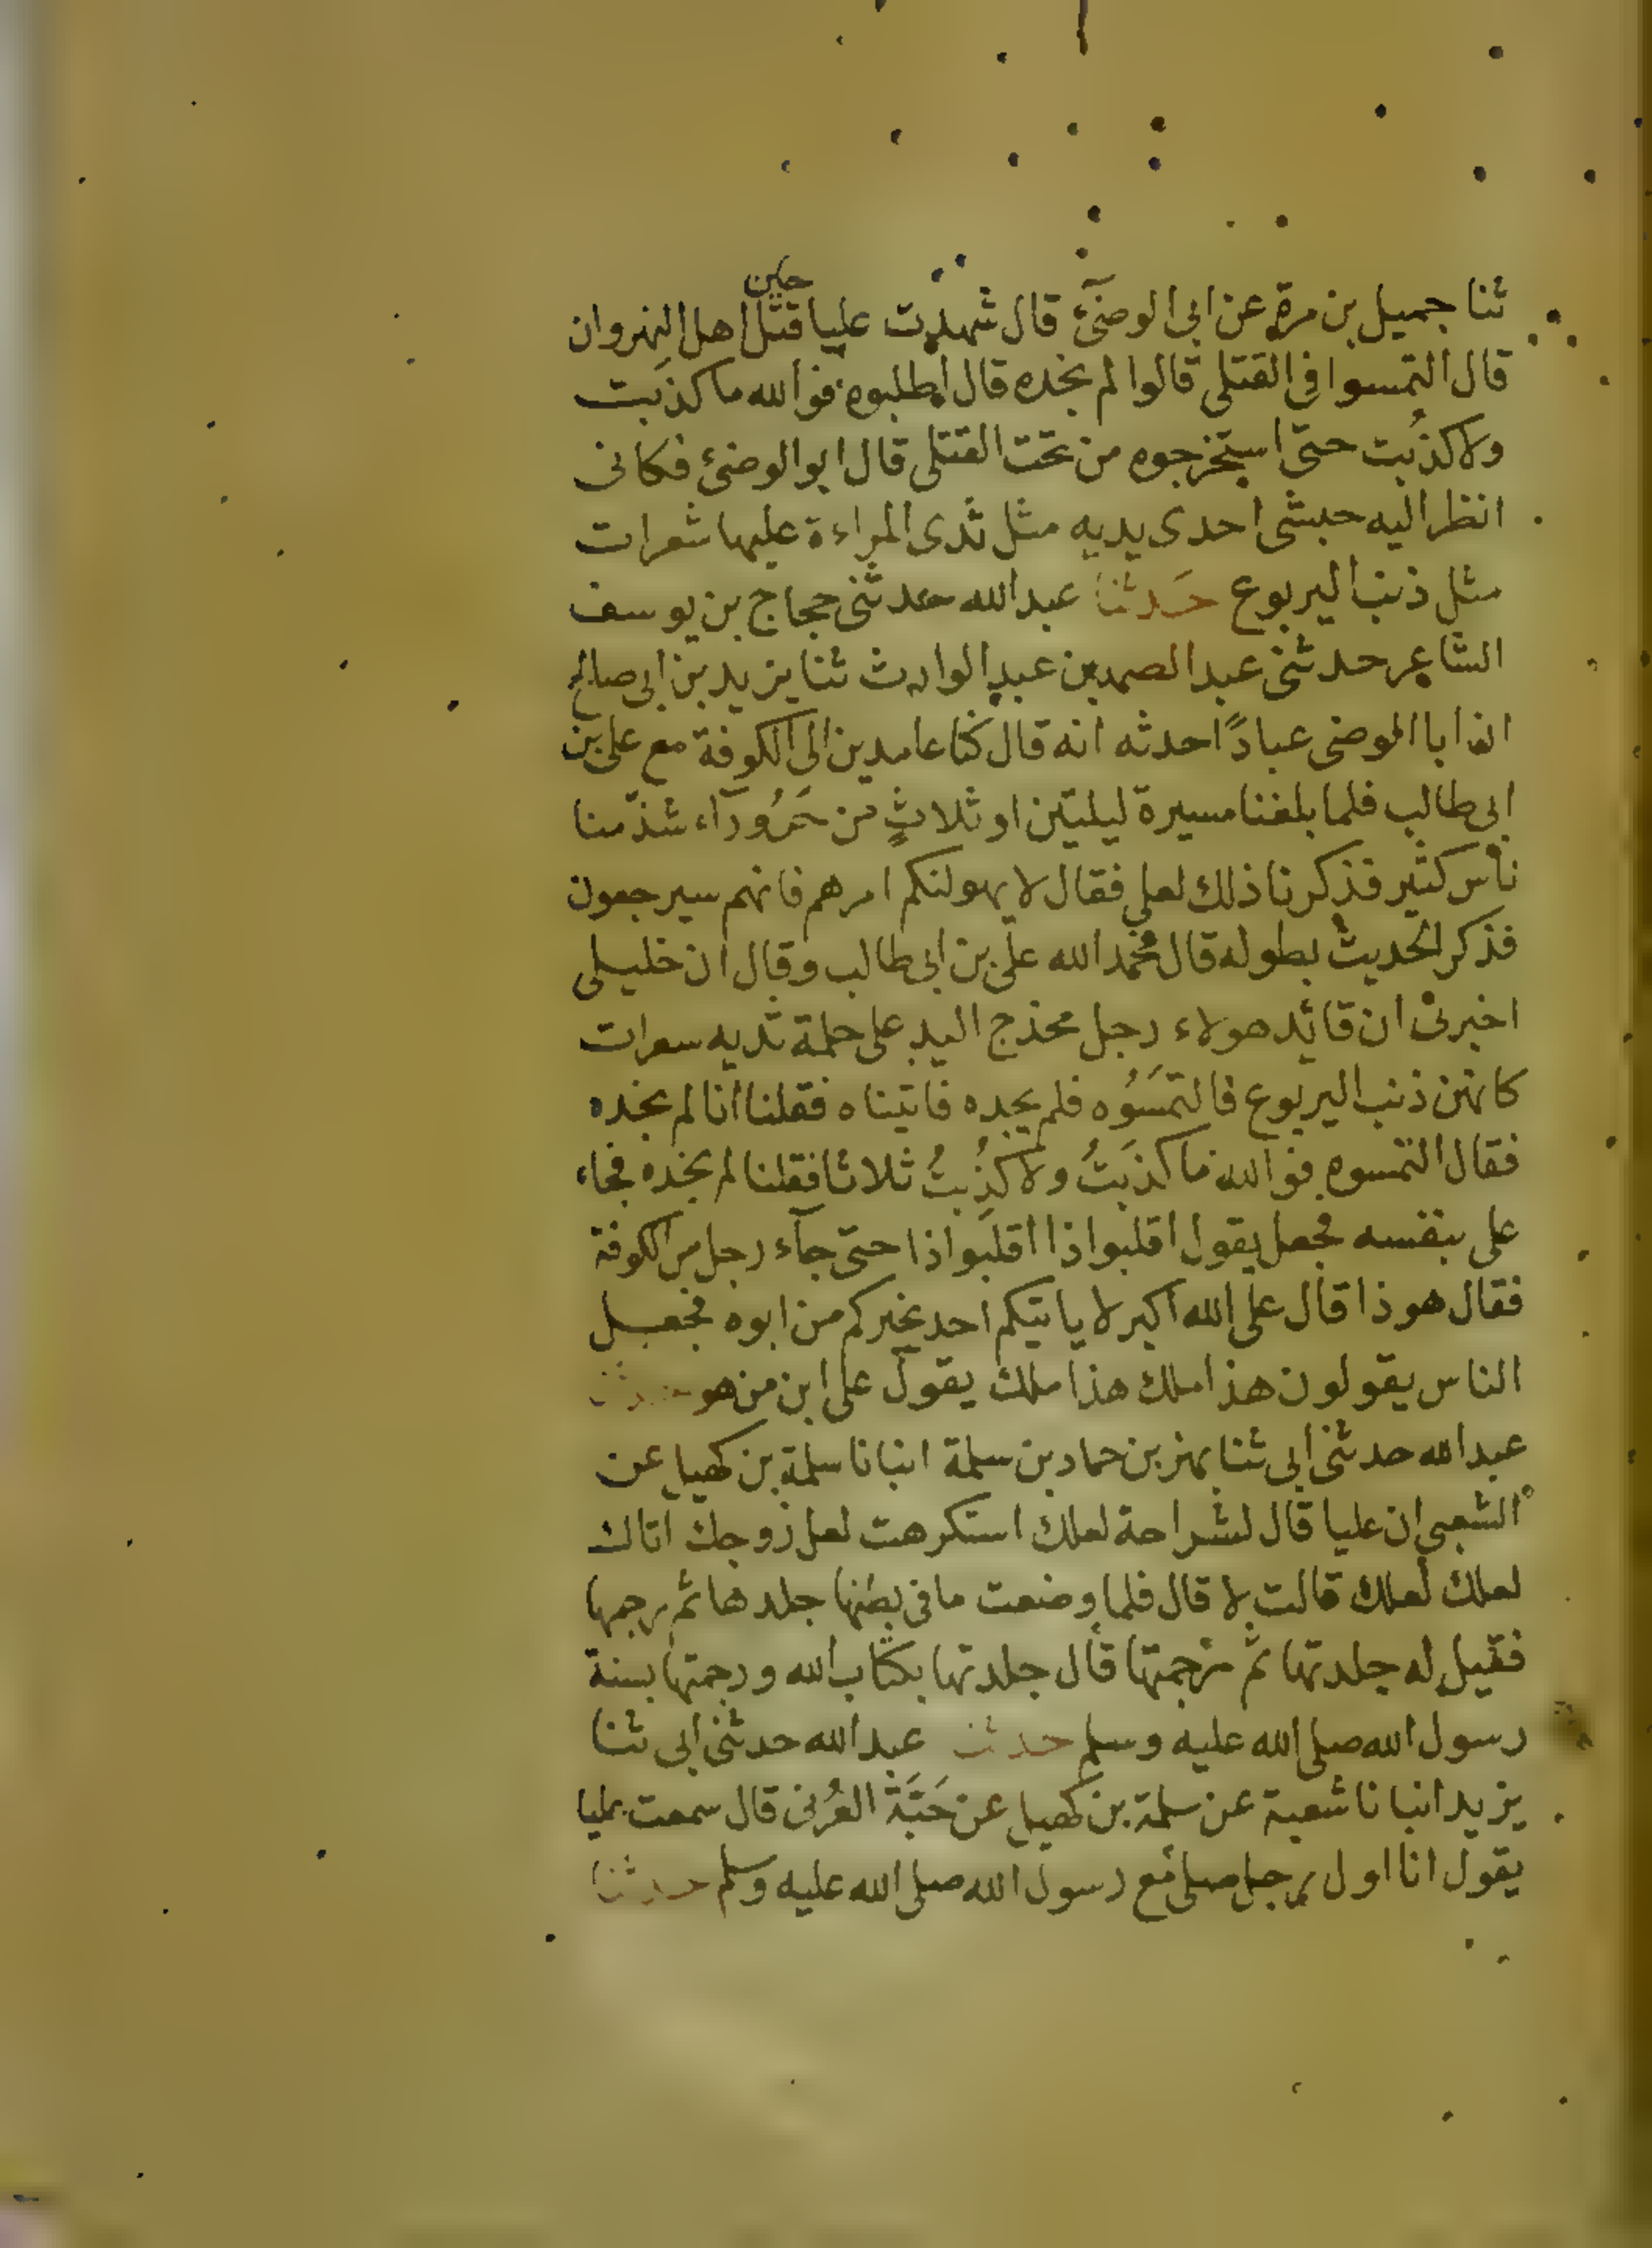 ثنا جميل بن مرة عن ابي الوضئ قال شهدت عليا حين قتل اهل النهروان
قال التمسوا في القتلى قالوا لم نجده قال اطلبوه فوالله ما كذبت
ولا كذبت حتى استخرجوه من تحت القتلى قال ابو الوضئ فكانى
انظر اليه حبشى احدى يديه مثل ثدى المراءة عليها شعرات
مثل ذنب اليربوع حدثنا عبد الله حدثنى حجاج بن يوسف
الشاعر حدثنى عبد الصمد بن عبد الوارث ثنا يزيد بن ابى صالح
ان ابا الوضى عبادًا حدثه انه قال كنا عامدين الى الكوفة مع على بن
ابى طالب فلما بلغنا مسيرة ليلتين او ثلاثٍ من حَرُورآء شذ منا
ناس كثير فذكرنا ذلك لعلى فقال لا يهولنكم امرهم فانهم سيرجعون
فذكر الحديث بطوله قال فحمد الله على بن ابى طالب وقال ان خليلى
اخبرنى ان قائد هولاء رجل مخدج اليد على حلمة ثديه سعرات
كانهن ذنب اليربوع فالتمسُوه فلم يجده فاتيناه فقلنا انا لم نجده
فقال التمسوه فوالله ما كذبتُ ولا كُذِبتُ ثلاثا فقلنا لم نجده فجاء
على بنفسه فجعل يقول اقلبوا ذا اقلبوا ذا حتى جآء رجل من الكوفة
فقال هو ذا قال على الله اكبر لا ياتيكم احد يخبركم من ابوه فجعل
الناس يقولون هذا ملك هذا ملك يقول على ابن من هو حدثنا
عبد الله حدثنى ابى ثنا بهز بن حماد بن سلمة انبانا سلمة بن كهيل عن
الشعبى ان عليا قال لشراحة لعلك استكرهت لعل زوجك اتاك
لعلك لعلك قالت لا قال فلما وضعت ما فى بطنها جلدها ثم رجمها
فقيل له جلدتها ثم رجمتها قال جلدتها بكتاب الله ورجمتها بسنة
رسول الله صلى الله عليه وسلم حدثنا عبد الله حدثنى ابى ثنا
يزيد انبانا شعبة عن سلمة بن كهيل عن حَبَّة العُرنى قال سمعت عليا
يقول انا اول رجل صلى مع رسول الله صلى الله عليه وسلم حدثنا